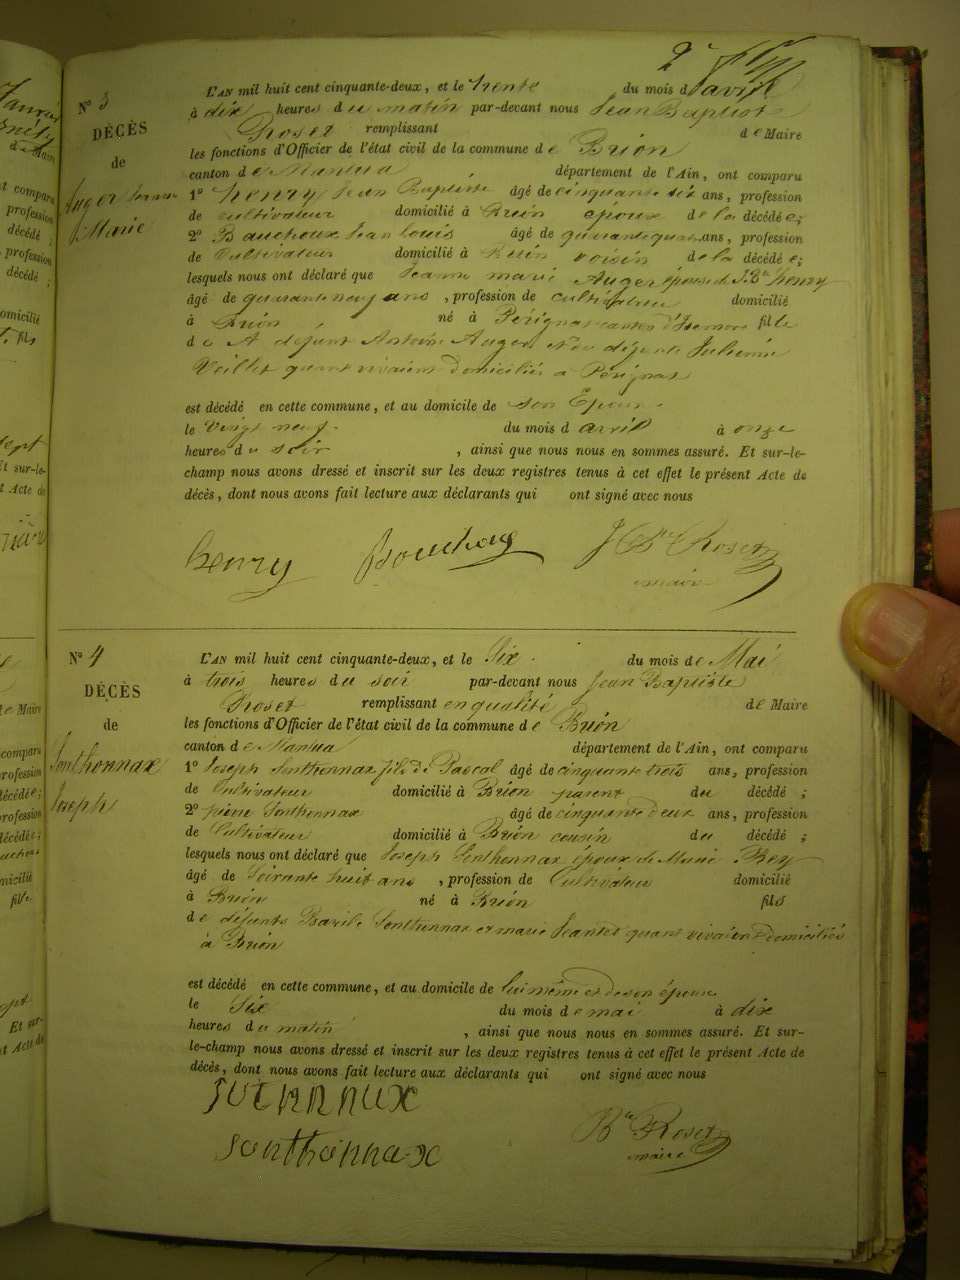 N° 3
DÉCÈS
de
Auger Jeanne
Marie
L'AN mil huit cent cinquante-deux, et le trente du mois d'avril
à dix heures du matin par-devant nous Jean Baptiste
Roset remplissant de Maire
les fonctions d'Officier de l'état civil de la commune de Brion
canton de Nantua département de l'Ain, ont comparu
1° henry Jean Baptiste âgé de cinquante six ans, profession
de cultivateur domicilié à Brion époux de la décédée;
2° Bauchoux Jean louis âgé de quarante quatre ans, profession
de Cultivateur domicilié à Brion voisin de la décédée;
lesquels nous ont déclaré que Jeanne marie Auger épouse de J. Bte henry
âgé de quarante neuf ans, profession de cultivateur domicilié
à Brion né à Pérignat canton d'Izernore fille
de défunt Antoine Auger et de défunte Julienne
Veillet quant vivaient Domiciliés à Pérignat
est décédé en cette commune, et au domicile de son Époux.
le Vingt neuf du mois d avril à onze
heures du soir, ainsi que nous nous en sommes assuré. Et sur-le-
champ nous avons dressé et inscrit sur les deux registres tenus à cet effet le présent Acte de
décès, dont nous avons fait lecture aux déclarants qui ont signé avec nous
henry Bouchoux J Bte Roset
maire
N° 4
DÉCÈS
de
Sonthonnax
Joseph
L'AN mil huit cent cinquante-deux, et le Six du mois de Mai
à trois heures du soir par-devant nous Jean Baptiste
Roset remplissant en qualité de Maire
les fonctions d'Officier de l'état civil de la commune de Brion
canton de Nantua département de l'Ain, ont comparu
1° Joseph Sonthonnax fils de Pascal âgé de cinquante trois ans, profession
de Cultivateur domicilié à Brion parent du décédé;
2° pierre Sonthonnax âgé de cinquante deux ans, profession
de Cultivateur domicilié à Brion cousin du décédé;
lesquels nous ont déclaré que Joseph Sonthonnax époux de Marie Rey
âgé de Soixante huit ans, profession de Cultivateur domicilié
à Brion né à Brion fils
de défunts Bazile Sonthonnax et marie Jeantet quant vivaient Domiciliés
à Brion
est décédé en cette commune, et au domicile de lui même et de son épouse
le Six du mois de mai à dix
heures du matin, ainsi que nous nous en sommes assuré. Et sur-
le-champ nous avons dressé et inscrit sur les deux registres tenus à cet effet le présent Acte de
décès, dont nous avons fait lecture aux déclarants qui ont signé avec nous
sothonnax
sonthonnax Bte Roset
maire